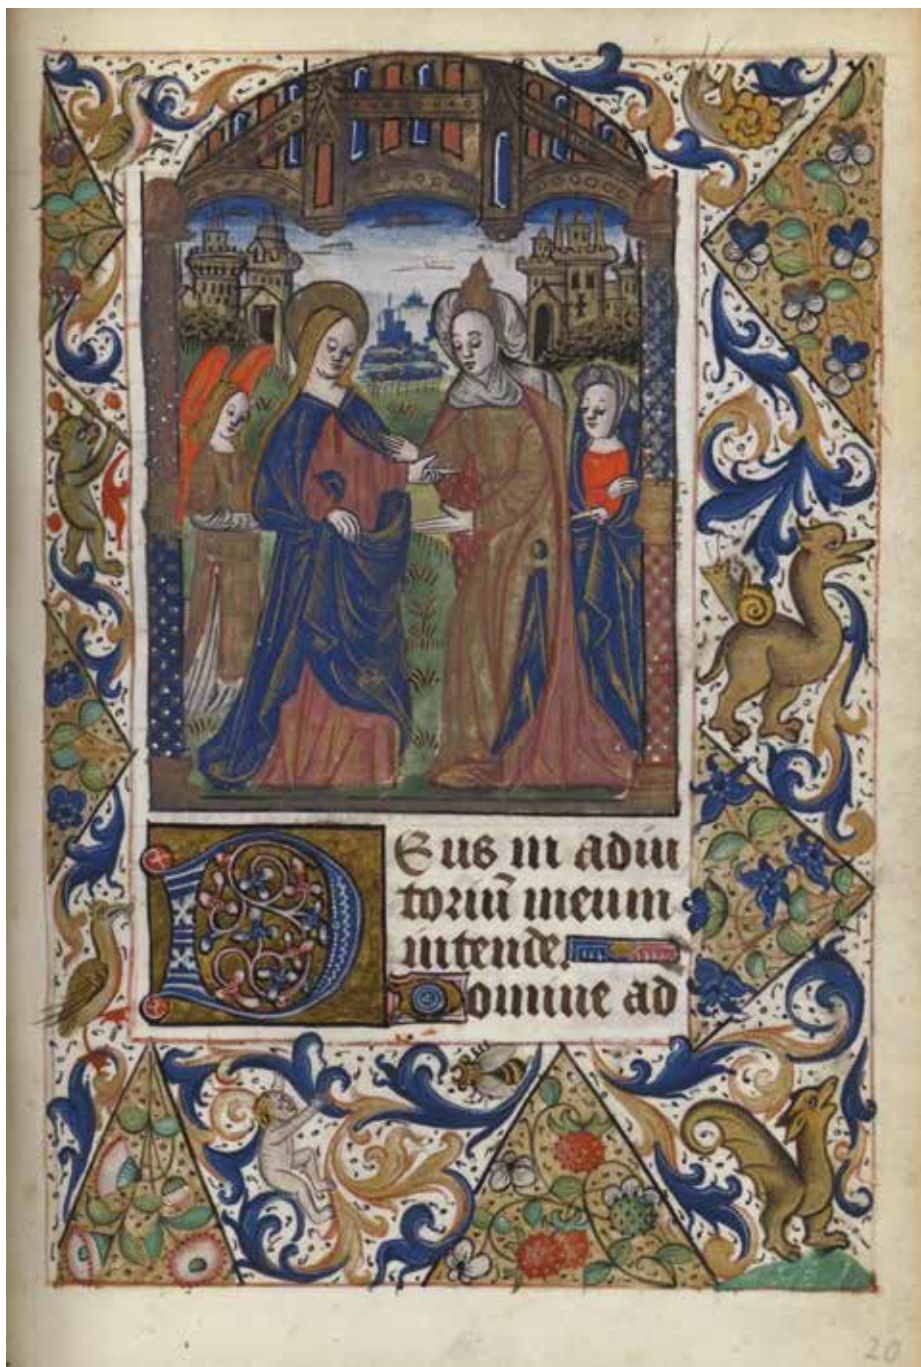 Deus in adiu
toriū meum
intende.
Domine ad
20